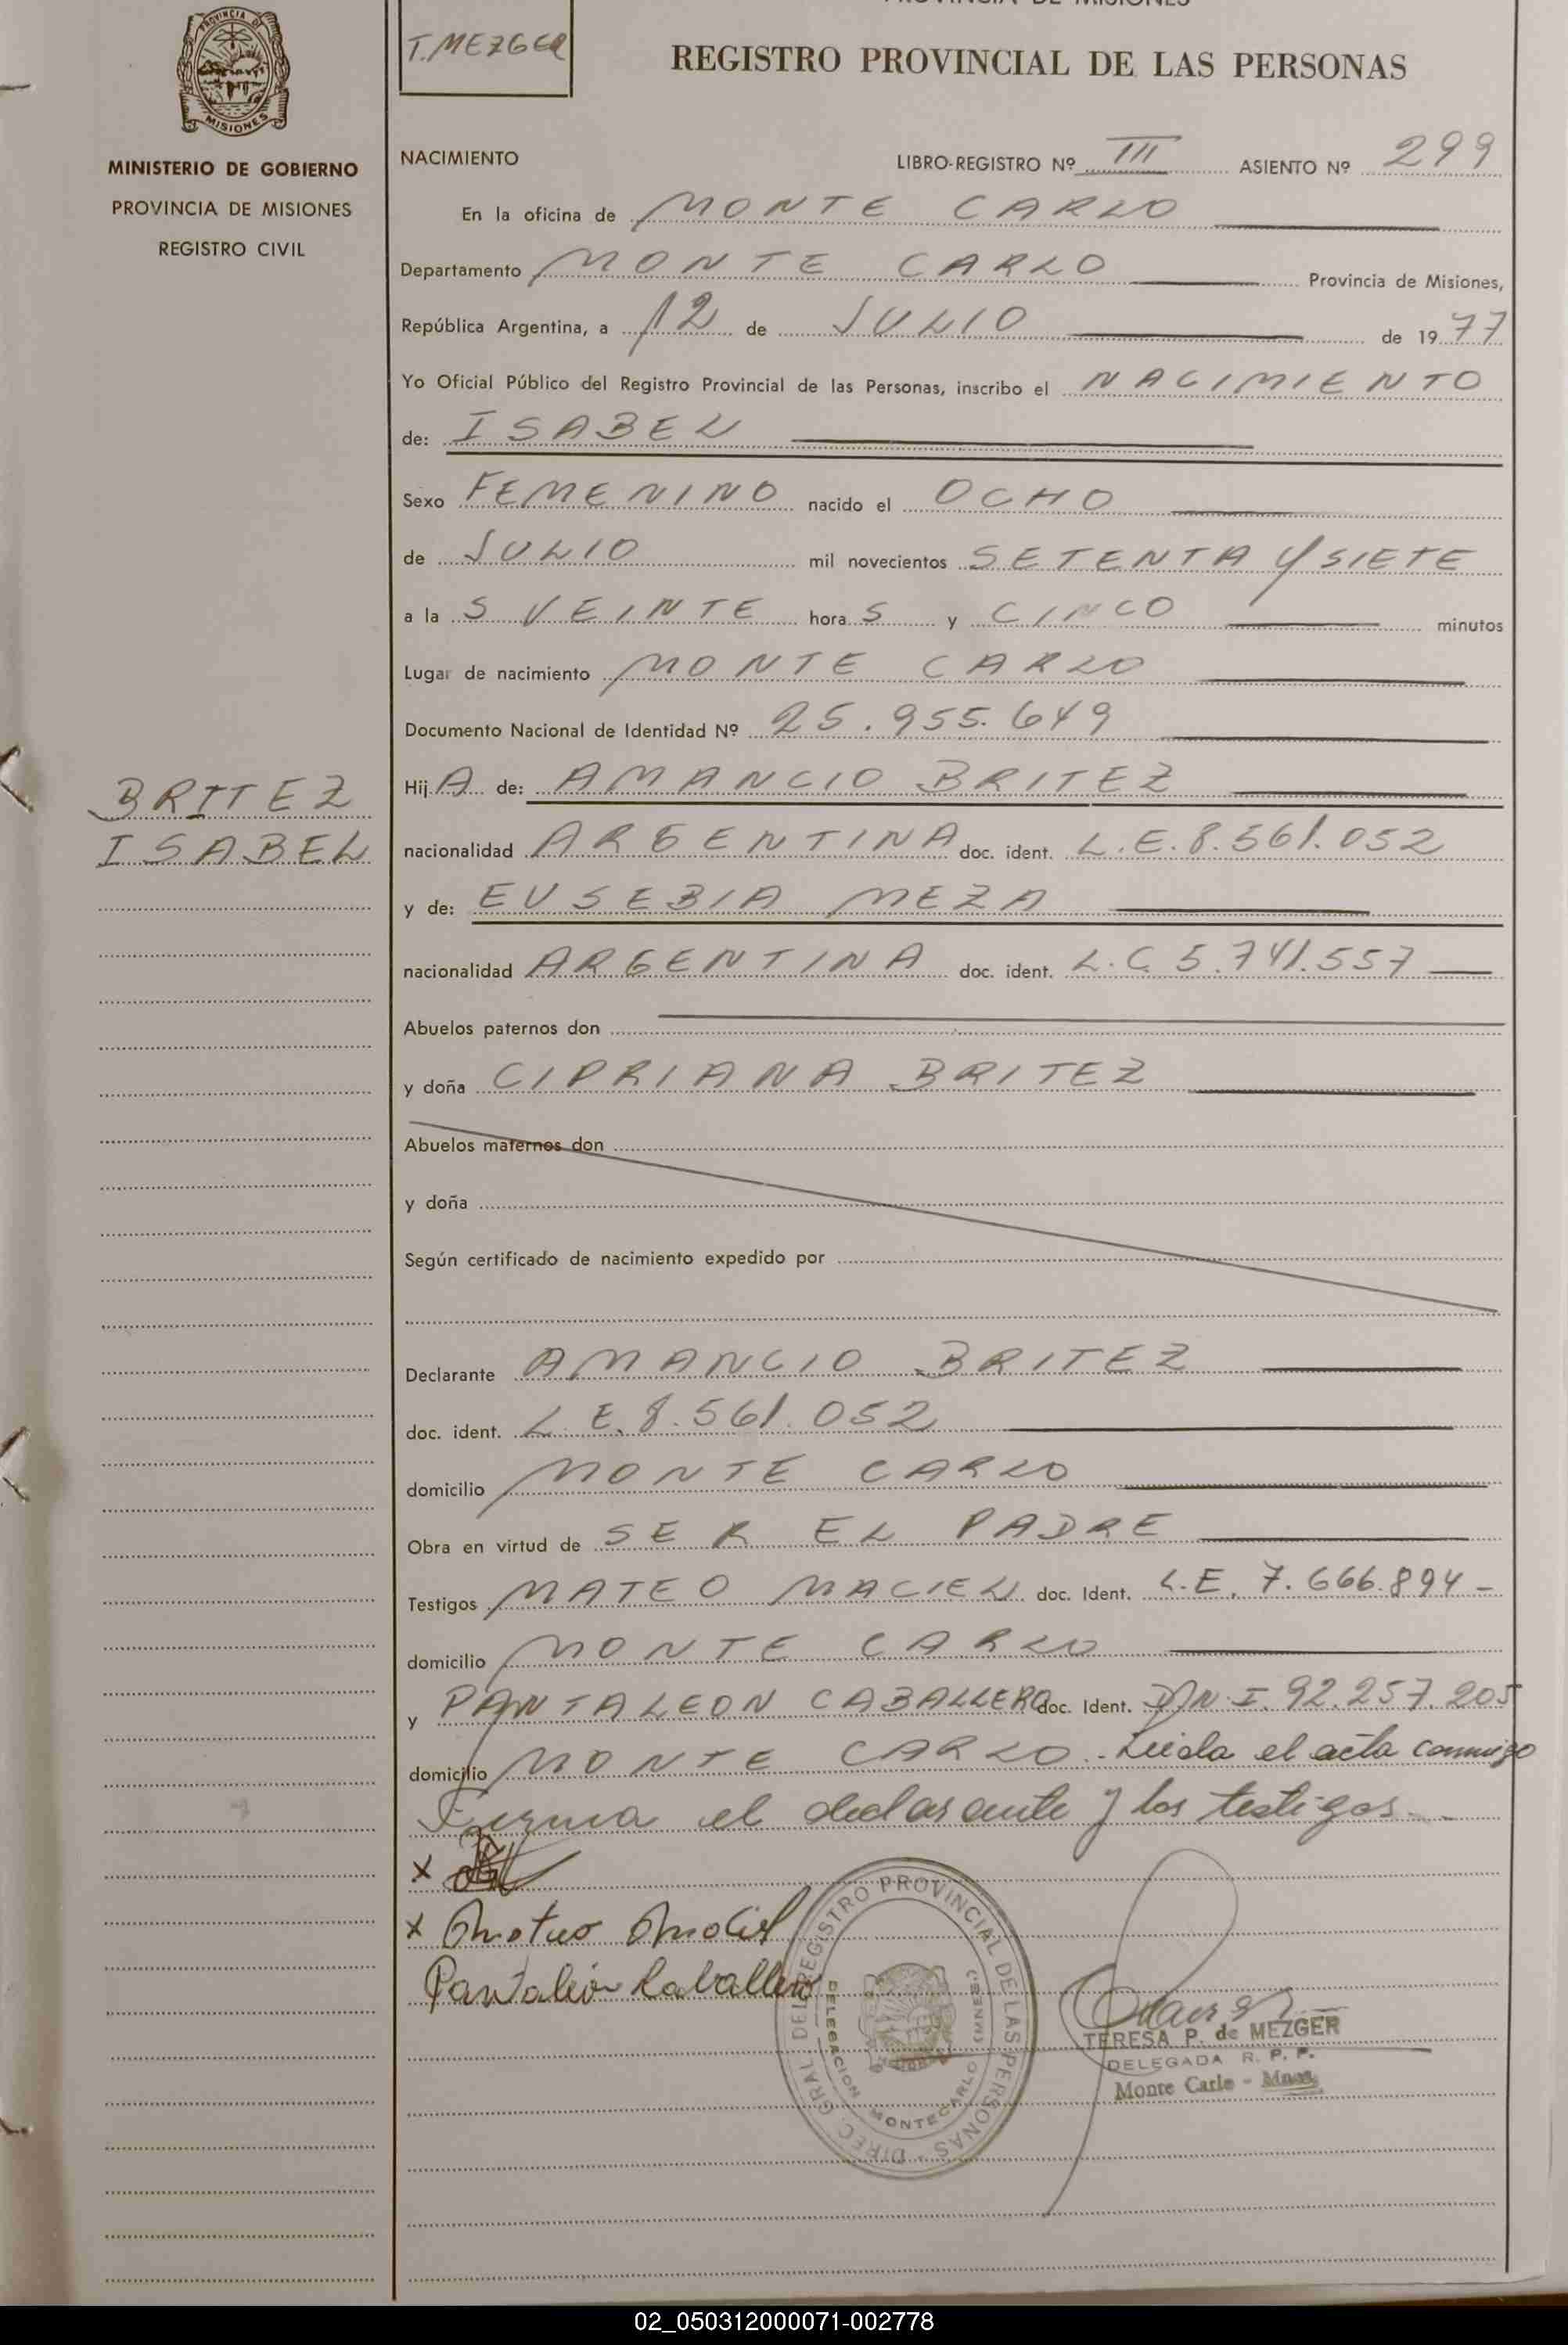 PROVINCIA DE MISIONES
T. MEZGER
REGISTRO PROVINCIAL DE LAS PERSONAS
MISIONES
MINISTERIO DE GOBIERNO
PROVINCIA DE MISIONES
REGISTRO CIVIL
NACIMIENTO LIBRO-REGISTRO Nº III ASIENTO Nº 299
En la oficina de MONTE CARLO
Departamento MONTE CARLO Provincia de Misiones,
República Argentina, a 12 de JULIO de 1977
Yo Oficial Público del Registro Provincial de las Personas, inscribo el NACIMIENTO
de: ISABEL
Sexo FEMENINO nacido el OCHO
de JULIO mil novecientos SETENTA Y SIETE
a la S VEINTE hora S y CINCO minutos
Lugar de nacimiento MONTE CARLO
Documento Nacional de Identidad Nº 25.955.649
BRITEZ
ISABEL
Hij A de: AMANCIO BRITEZ
nacionalidad ARGENTINA doc. ident. L.E. 8.561.052
y de: EUSEBIA MEZA
nacionalidad ARGENTINA doc. ident. L.C. 5.741.557
Abuelos paternos don
y doña CIPRIANA BRITEZ
Abuelos maternos don
y doña
Según certificado de nacimiento expedido por
Declarante AMANCIO BRITEZ
doc. ident. L.E. 8.561.052
domicilio MONTE CARLO
Obra en virtud de SER EL PADRE
Testigos MATEO MACIEL doc. Ident. L.E. 7.666.894 -
domicilio MONTE CARLO
y PANTALEON CABALLERO doc. Ident. D.N.I. 92.257.205
domicilio MONTE CARLO.- Leída el acta conmigo
Firma el declarante y los testigos.-
X
X Mateo Maciel
Pantaleón Caballero
DIREC. GRAL. DEL REGISTRO PROVINCIAL DE LAS PERSONAS
DELEGACION MONTECARLO (MNES.)
TERESA P. de MEZGER
DELEGADA R. P. P.
Monte Carlo - Mnes.
02_050312000071-002778